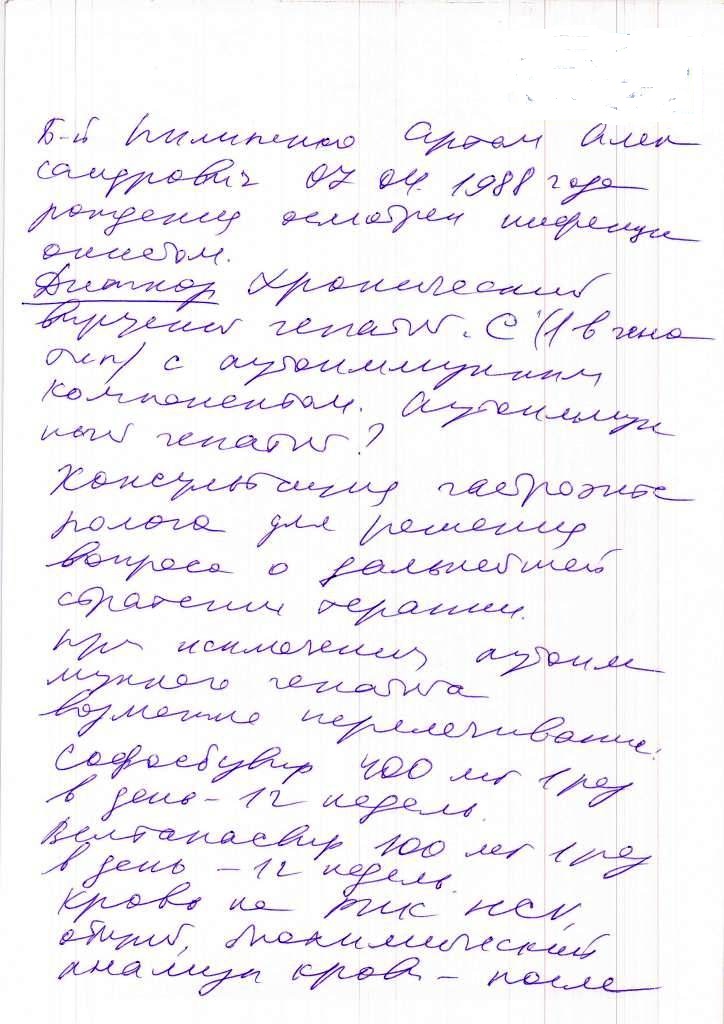 Б-й Пилипенко Артем Алек
сандрович 07 04. 1988 года
рождения осмотрен инфекци
онистом.
Диагноз Хронический
вирусный гепатит. С (1 в гено
тип) с аутоиммунным
компонентом. Аутоиммун
ный гепатит?
Консультация гастроэнте
ролога для решения
вопроса о дальнейшей
стратегии терапии.
При исключении аутоим
мунного гепатита
возможно перелечивание:
Софосбувир 400 мг 1 раз
в день - 12 недель.
Велпатасвир 100 мг 1 раз
в день - 12 недель.
Кровь на РНК HCV,
общий, биохимический
анализы крови - после